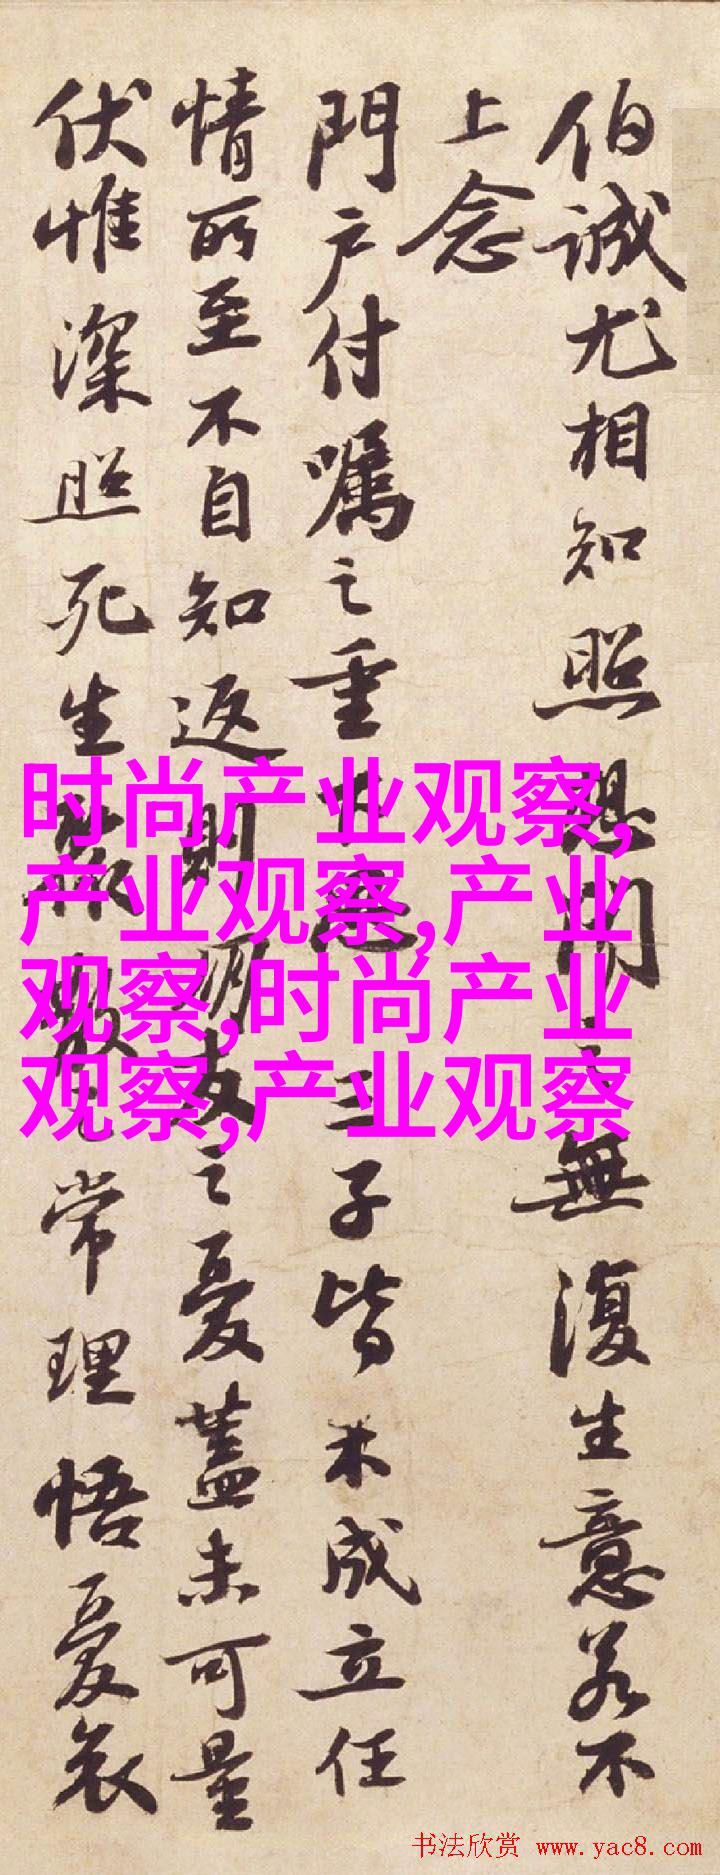 伯誠尤相知照想聞之無復生意若不
上念
門戶付囑之重下思三子皆未成立任
情所至不自知返則朋友之憂蓋未可量
伏惟深照死生聚散之常理悟憂哀
时尚产业观察,
产业观察,产业
观察,时尚产业
观察,产业观察
书法欣赏 www.yac8.com